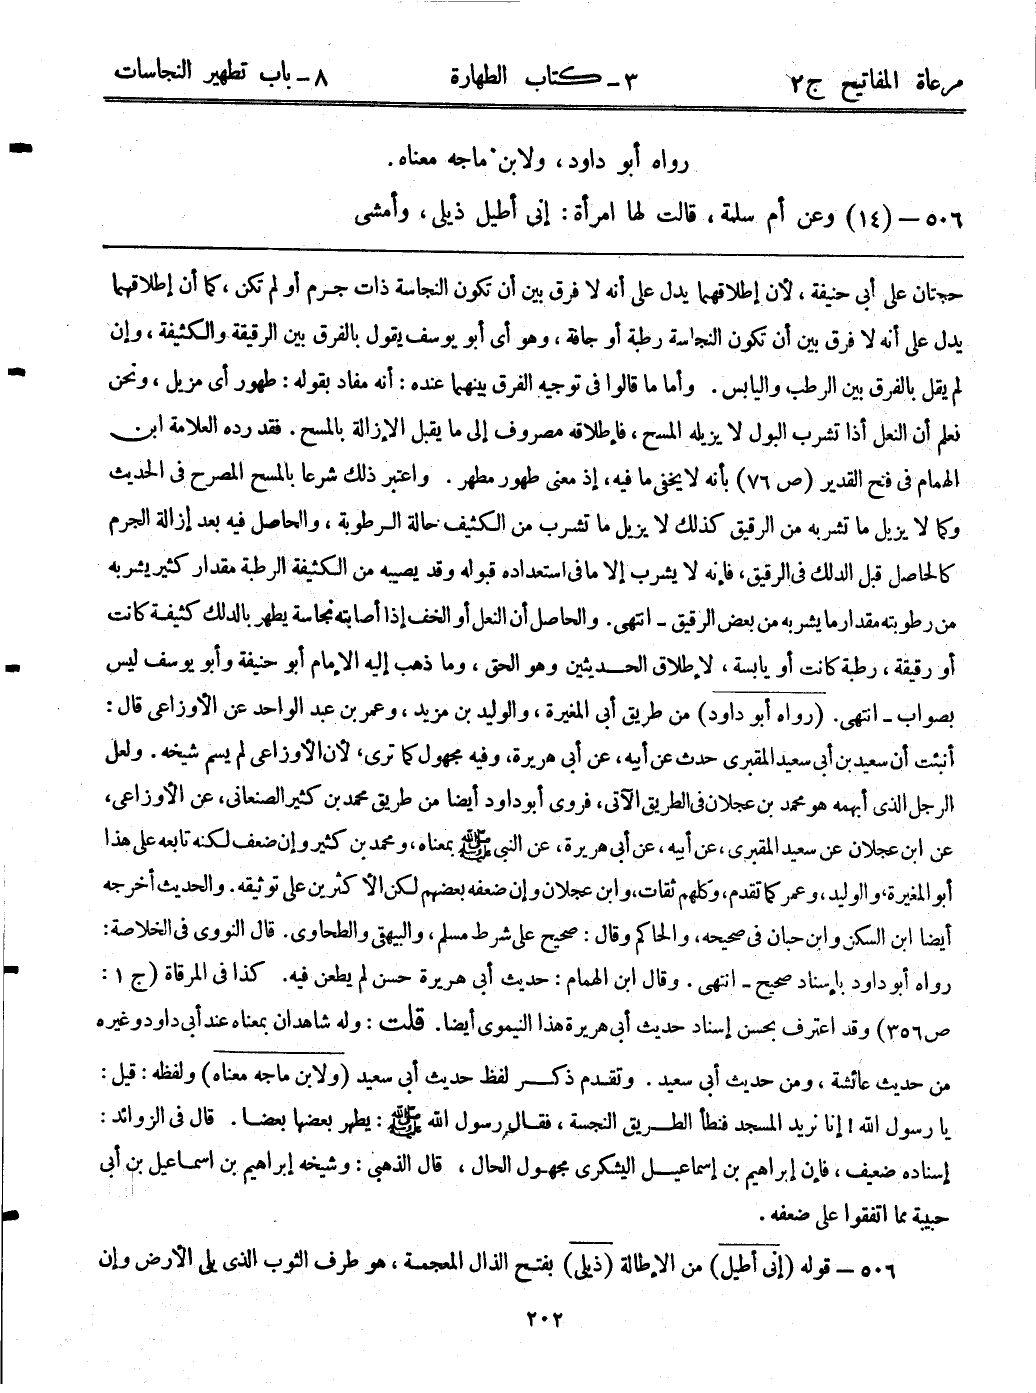 مرعاة المفاتيح ج٢ ٣ - كتاب الطهارة ٨ - باب تطهير النجاسات
رواه أبو داود، ولابن ماجه معناه.
٥٠٦ – (١٤) وعن أم سلمة، قالت لها امرأة: إنى أطيل ذيلى، وأمشى
حجتان على أبي حنيفة، لأن إطلاقهما يدل على أنه لا فرق بين أن تكون النجاسة ذات جرم أو لم تكن، كما أن إطلاقهما
يدل على أنه لا فرق بين أن تكون النجاسة رطبة أو جافة، وهو أى أبو يوسف يقول بالفرق بين الرقيقة والكثيفة، وإن
لم يقل بالفرق بين الرطب واليابس. وأما ما قالوا فى توجيه الفرق بينهما عنده: أنه مفاد بقوله: طهور أى مزيل، ونحن
نعلم أن النعل أذا تشرب البول لا يزيله المسح، فإطلاقه مصروف إلى ما يقبل الإزالة بالمسح. فقد رده العلامة ابن
الهمام فى فتح القدير (ص ٧٦) بأنه لا يخفى ما فيه، إذ معنى طهور مطهر. واعتبر ذلك شرعا بالمسح المصرح فى الحديث
وكما لا يزيل ما تشربه من الرقيق كذلك لا يزيل ما تشرب من الكثيف حالة الرطوبة، والحاصل فيه بعد إزالة الجرم
كالحاصل قبل الدلك فى الرقيق، فإنه لا يشرب إلا ما فى استعداده قبوله وقد يصيبه من الكثيفة الرطبة مقدار كثير يشربه
من رطوبته مقدار ما يشربه من بعض الرقيق - انتهى. والحاصل أن النعل أو الخف إذا أصابته نجاسة يطهر بالدلك كثيفة كانت
أو رقيقة، رطبة كانت أو يابسة، لإطلاق الحديثين وهو الحق، وما ذهب إليه الإمام أبو حنيفة وأبو يوسف ليس
بصواب - انتهى. (رواه أبو داود) من طريق أبي المغيرة، والوليد بن مزيد، وعمر بن عبد الواحد عن الأوزاعى قال:
أنبئت أن سعيد بن أبي سعيد المقبرى حدث عن أبيه، عن أبي هريرة، وفيه مجهول كما ترى، لأن الأوزاعى لم يسم شيخه. ولعل
الرجل الذى أبهمه هو محمد بن عجلان فى الطريق الآتى، فروى أبو داود أيضا من طريق محمد بن كثير الصنعانى، عن الأوزاعى،
عن ابن عجلان عن سعيد المقبرى، عن أبيه، عن أبي هريرة، عن النبى ﷺ بمعناه، ومحمد بن كثير وإن ضعف لكنه تابعه على هذا
أبو المغيرة، والوليد، وعمر كما تقدم، وكلهم ثقات، وابن عجلان وإن ضعفه بعضهم لكن الأكثرين على توثيقه. والحديث أخرجه
أيضا ابن السكن وابن حبان فى صحيحه، والحاكم وقال: صحيح على شرط مسلم، والبيهقى والطحاوى. قال النووى فى الخلاصة:
رواه أبو داود بإسناد صحيح - انتهى. وقال ابن الهمام: حديث أبي هريرة حسن لم يطعن فيه. كذا فى المرقاة (ج ١:
ص ٣٥٦) وقد اعترف بحسن إسناد حديث أبي هريرة هذا النيموى أيضا. قلت: وله شاهدان بمعناه عند أبي داود وغيره
من حديث عائشة، ومن حديث أبي سعيد. وتقدم ذكر لفظ حديث أبي سعيد (ولابن ماجه معناه) ولفظه: قيل:
يا رسول الله! إنا نريد المسجد فنطأ الطريق النجسة، فقال رسول الله ﷺ: يطهر بعضها بعضا. قال فى الزوائد:
إسناده ضعيف، فإن إبراهيم بن إسماعيل اليشكرى مجهول الحال، قال الذهبى: وشيخه إبراهيم بن اسماعيل بن أبي
حبيبة مما اتفقوا على ضعفه.
٥٠٦ – قوله (إنى أطيل) من الإطالة (ذيلى) بفتح الذال المعجمة، هو طرف الثوب الذى يلى الأرض وإن
٢٠٢